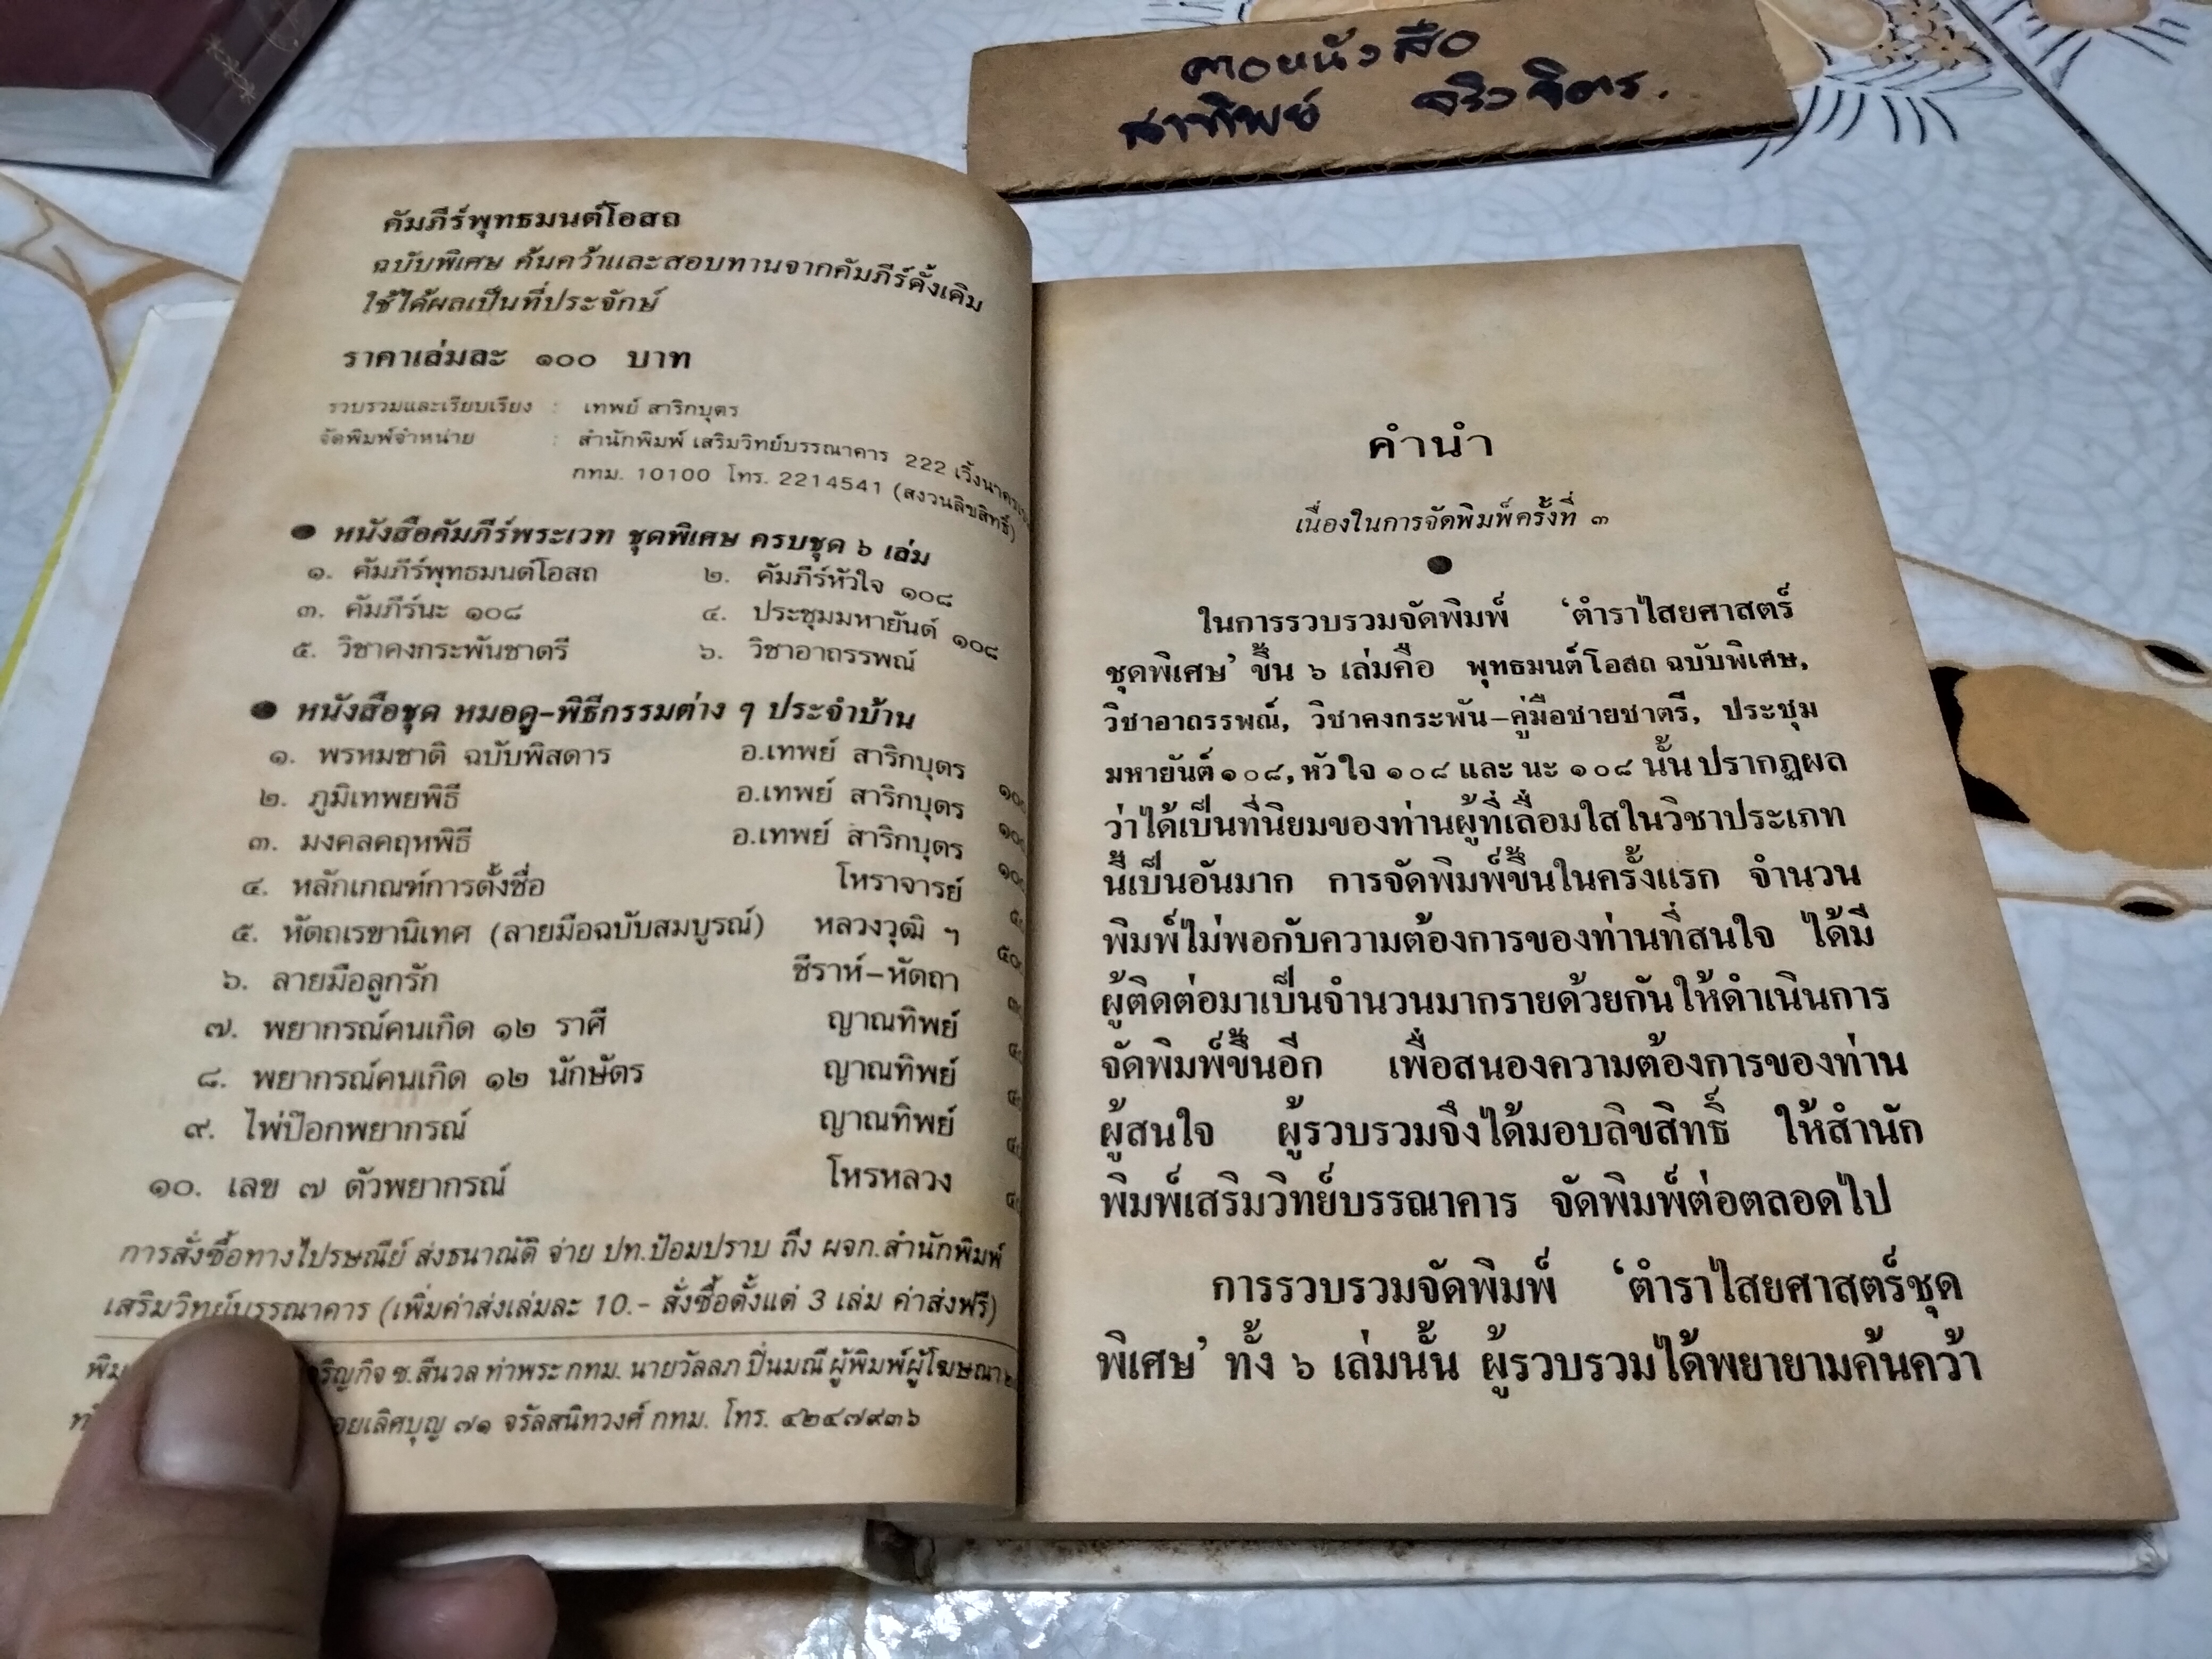 คอหนังสือ
คัมภีร์พุทธมนต์โอสถ
ฉบับพิเศษ ค้นคว้าและสอบทานจากคัมภีร์ดั้งเดิม
ใช้ได้ผลเป็นที่ประจักษ์
ราคาเล่มละ ๑๐๐ บาท
รวบรวมและเรียบเรียง : เทพย์ สาริกบุตร
จัดพิมพ์จำหน่าย : สำนักพิมพ์ เสริมวิทย์บรรณาคาร 222
กทม. 10100 โทร. 2214541 (สงวนลิขสิทธิ์)
● หนังสือคัมภีร์พระเวท ชุดพิเศษ ครบชุด ๖ เล่ม
๑. คัมภีร์พุทธมนต์โอสถ ๒. คัมภีร์หัวใจ ๑๐๘
๓. คัมภีร์นะ ๑๐๘ ๔. ประชุมมหายันต์ ๑๐๘
๕. วิชาคงกระพันชาตรี ๖. วิชาอาถรรพณ์
● หนังสือชุด หมอดู-พิธีกรรมต่าง ๆ ประจำบ้าน
๑. พรหมชาติ ฉบับพิสดาร อ.เทพย์ สาริกบุตร
๒. ภูมิเทพยพิธี อ.เทพย์ สาริกบุตร
๓. มงคลคฤหพิธี อ.เทพย์ สาริกบุตร
๔. หลักเกณฑ์การตั้งชื่อ โหราจารย์
๕. หัตถเรขานิเทศ (ลายมือฉบับสมบูรณ์) หลวงวุฒิ ฯ
๖. ลายมือลูกรัก ชีราห์-หัตถา
๗. พยากรณ์คนเกิด ๑๒ ราศี ญาณทิพย์
๘. พยากรณ์คนเกิด ๑๒ นักษัตร ญาณทิพย์
๙. ไพ่ป๊อกพยากรณ์ ญาณทิพย์
๑๐. เลข ๗ ตัวพยากรณ์ โหรหลวง
การสั่งซื้อทางไปรษณีย์ ส่งธนาณัติ จ่าย ปท.ป้อมปราบ ถึง ผจก.สำนักพิมพ์
เสริมวิทย์บรรณาคาร (เพิ่มค่าส่งเล่มละ 10.- สั่งซื้อตั้งแต่ 3 เล่ม ค่าส่งฟรี)
ซ.สีนวล ท่าพระ กทม. นายวัลลภ ปิ่นมณี ผู้พิมพ์ผู้โฆษณา
๗๑ จรัลสนิทวงศ์ กทม. โทร. ๔๒๔๗๙๓๖
คำนำ
เนื่องในการจัดพิมพ์ครั้งที่ ๓
●
ในการรวบรวมจัดพิมพ์ ‘ตำราไสยศาสตร์
ชุดพิเศษ’ ขึ้น ๖ เล่มคือ พุทธมนต์โอสถ ฉบับพิเศษ,
วิชาอาถรรพณ์, วิชาคงกระพัน-คู่มือชายชาตรี, ประชุม
มหายันต์ ๑๐๘, หัวใจ ๑๐๘ และ นะ ๑๐๘ นั้น ปรากฏผล
ว่าได้เป็นที่นิยมของท่านผู้ที่เลื่อมใสในวิชาประเภท
นี้เป็นอันมาก การจัดพิมพ์ขึ้นในครั้งแรก จำนวน
พิมพ์ไม่พอกับความต้องการของท่านที่สนใจ ได้มี
ผู้ติดต่อมาเป็นจำนวนมากรายด้วยกันให้ดำเนินการ
จัดพิมพ์ขึ้นอีก เพื่อสนองความต้องการของท่าน
ผู้สนใจ ผู้รวบรวมจึงได้มอบลิขสิทธิ์ ให้สำนัก
พิมพ์เสริมวิทย์บรรณาคาร จัดพิมพ์ต่อตลอดไป
การรวบรวมจัดพิมพ์ ‘ตำราไสยศาสตร์ชุด
พิเศษ’ ทั้ง ๖ เล่มนั้น ผู้รวบรวมได้พยายามค้นคว้า